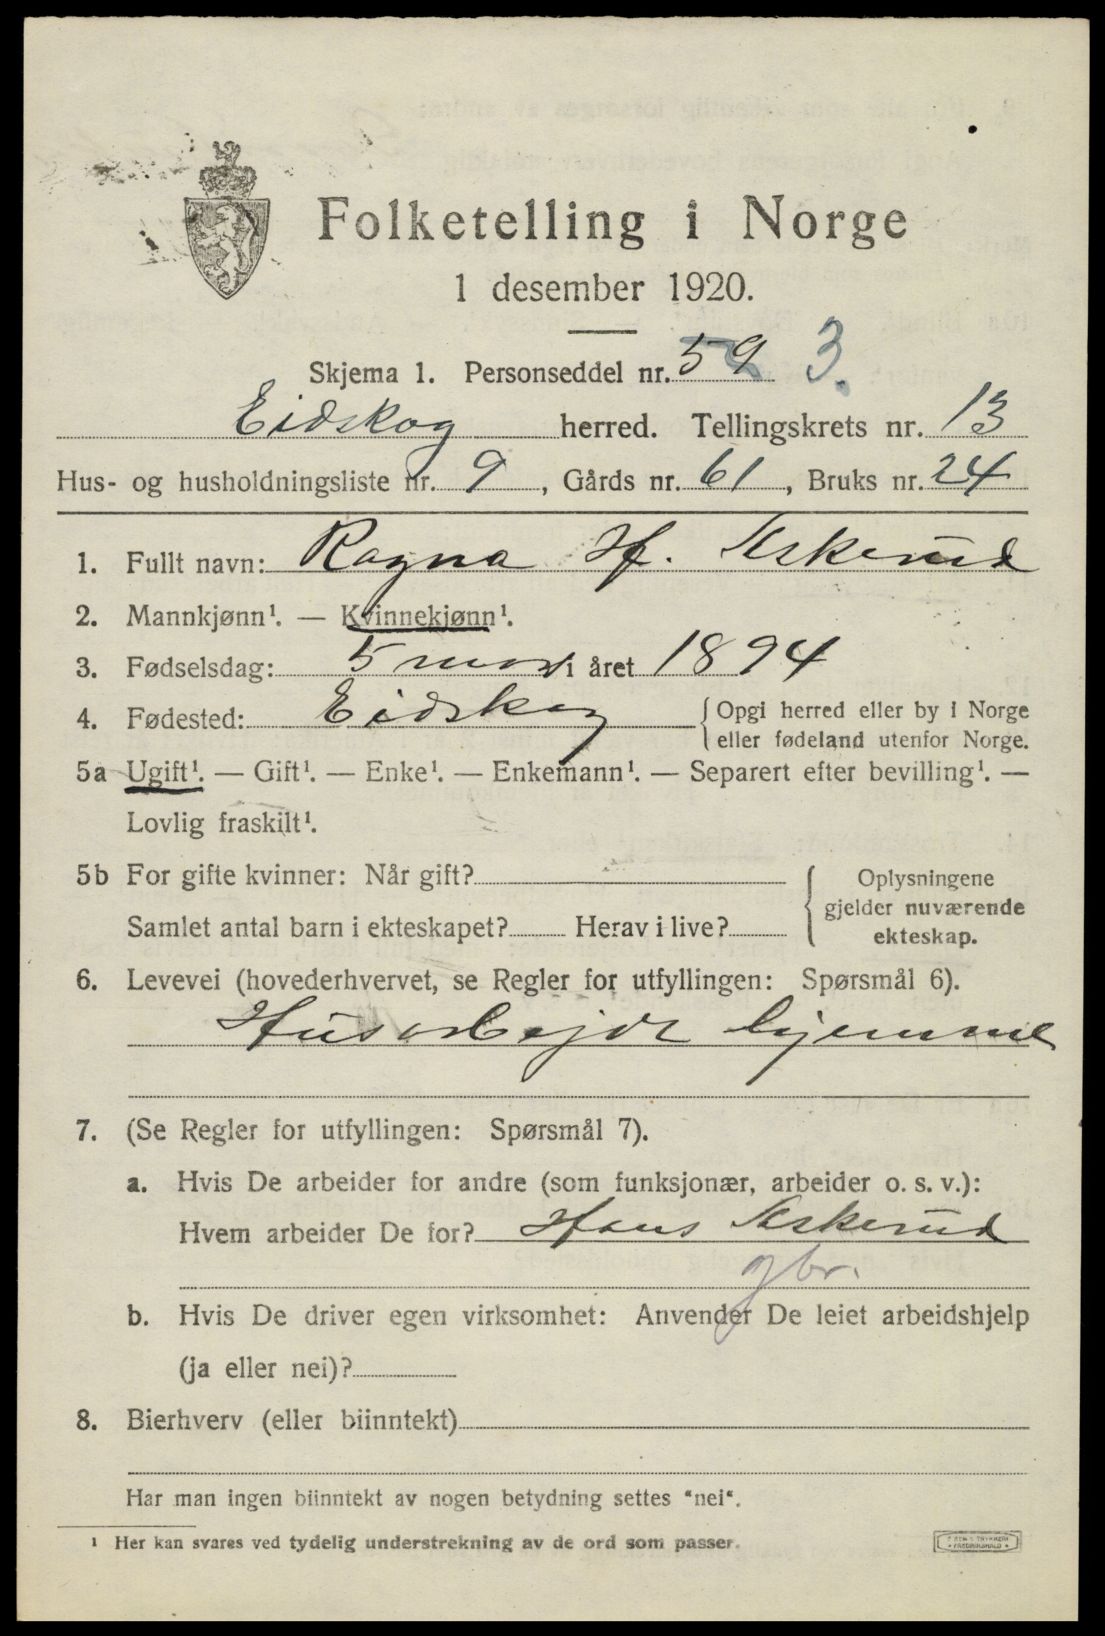 Folketelling i Norge
1 desember 1920.
Skjema 1. Personseddel nr. 59 3.
Eidskog herred. Tellingskrets nr. 13
Hus- og husholdningsliste nr. 9, Gårds nr. 61, Bruks nr. 24
1. Fullt navn: Ragna H. Askerud
2. Mannkjønn¹. — Kvinnekjønn¹.
3. Fødselsdag: 5 mars i året 1894
4. Fødested: Eidskog {Opgi herred eller by i Norge
eller fødeland utenfor Norge.
5a Ugift¹. — Gift¹. — Enke¹. — Enkemann¹. — Separert efter bevilling¹. —
Lovlig fraskilt¹.
5b For gifte kvinner: Når gift?
Samlet antal barn i ekteskapet? Herav i live?
{Oplysningene
gjelder nuværende
ekteskap.
6. Levevei (hovederhvervet, se Regler for utfyllingen: Spørsmål 6).
Husarbejde hjemme
7. (Se Regler for utfyllingen: Spørsmål 7).
a. Hvis De arbeider for andre (som funksjonær, arbeider o. s. v.):
Hvem arbeider De for? Hans Askerud
gbr.
b. Hvis De driver egen virksomhet: Anvender De leiet arbeidshjelp
(ja eller nei)?
8. Bierhverv (eller biinntekt)
Har man ingen biinntekt av nogen betydning settes "nei".
¹ Her kan svares ved tydelig understrekning av de ord som passer.